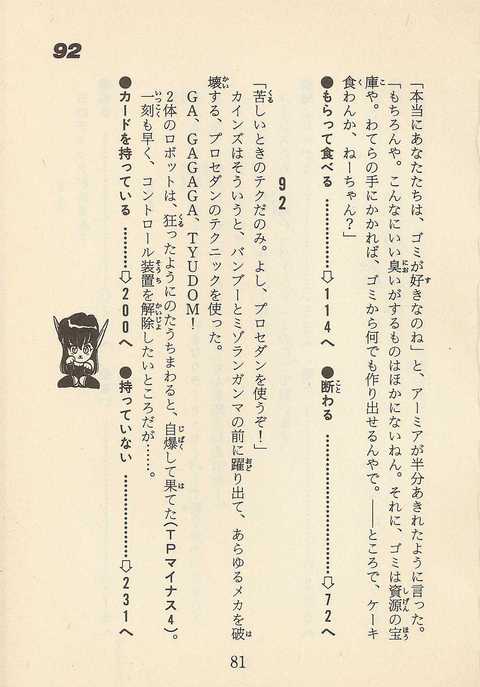 92
「本当にあなたたちは、ゴミが好きなのね」と、アーミアが半分あきれたように言った。
「もちろんや。こんなにいい臭いがするものはほかにないねん。それに、ゴミは資源の宝
庫や。わてらの手にかかれば、ゴミから何でも作り出せるんやで。――ところで、ケーキ
食わんか、ねーちゃん？」
●もらって食べる ………⇨114へ ●断わる ………⇨72へ
92
「苦しいときのテクだのみ。よし、プロセダンを使うぞ！」
カインズはそういうと、バンブーとミゾランガンマの前に躍り出て、あらゆるメカを破
壊する、プロセダンのテクニックを使った。
GA、GAGAGA、TYUDOM！
2体のロボットは、狂ったようにのたうちまわると、自爆して果てた（TPマイナス4）。
一刻も早く、コントロール装置を解除したいところだが……。
●カードを持っている ………⇨200へ ●持っていない ………⇨231へ
81